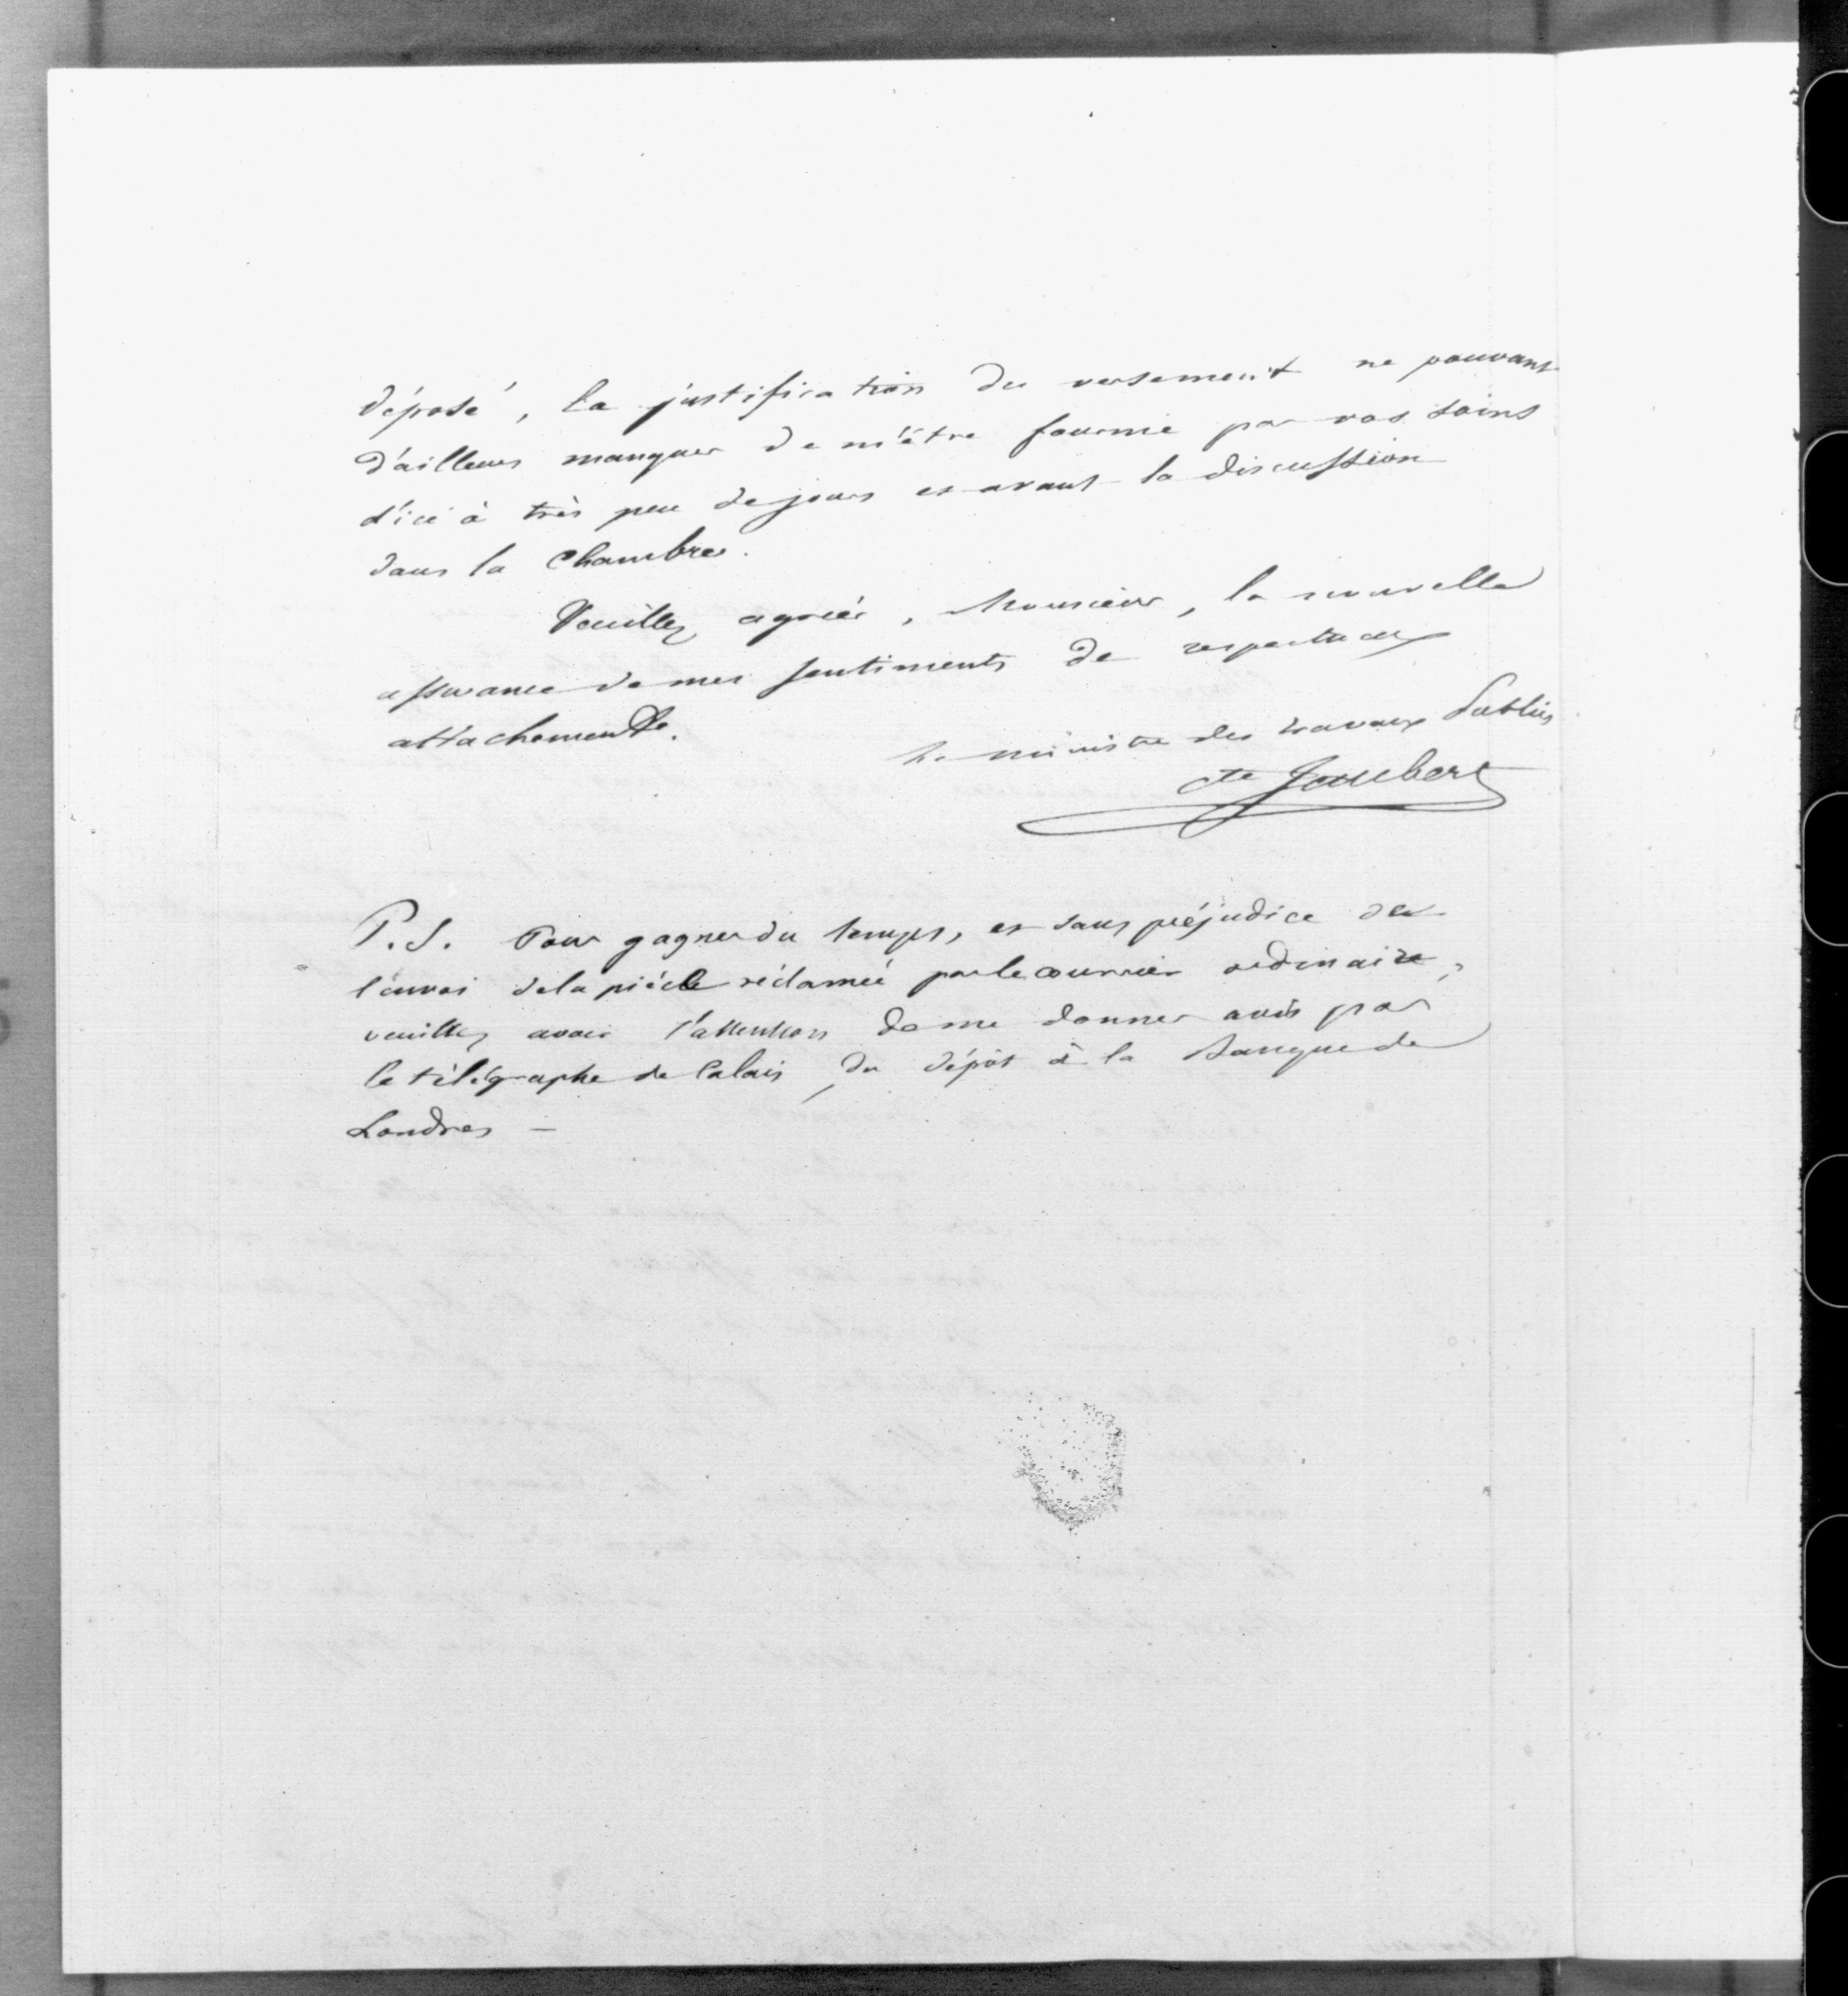 déposé, la justification du versement ne pouvant
d'ailleurs manquer de m'être fournie par vos soins
d'ici à très peu de jours et avant la discussion
dans la Chambre.
Veuillez agréer, Monsieur, la nouvelle
assurance de mes sentiments de respectueux
attachement.
le ministre des travaux Publics
Cte Jaubert
P.S. Pour gagner du temps, et sans préjudice de
l'envoi de la pièce réclamée par le courrier ordinaire,
veuillez avoir l'attention de me donner avis par
le télégraphe de Calais, du dépôt à la Banque de
Londres —